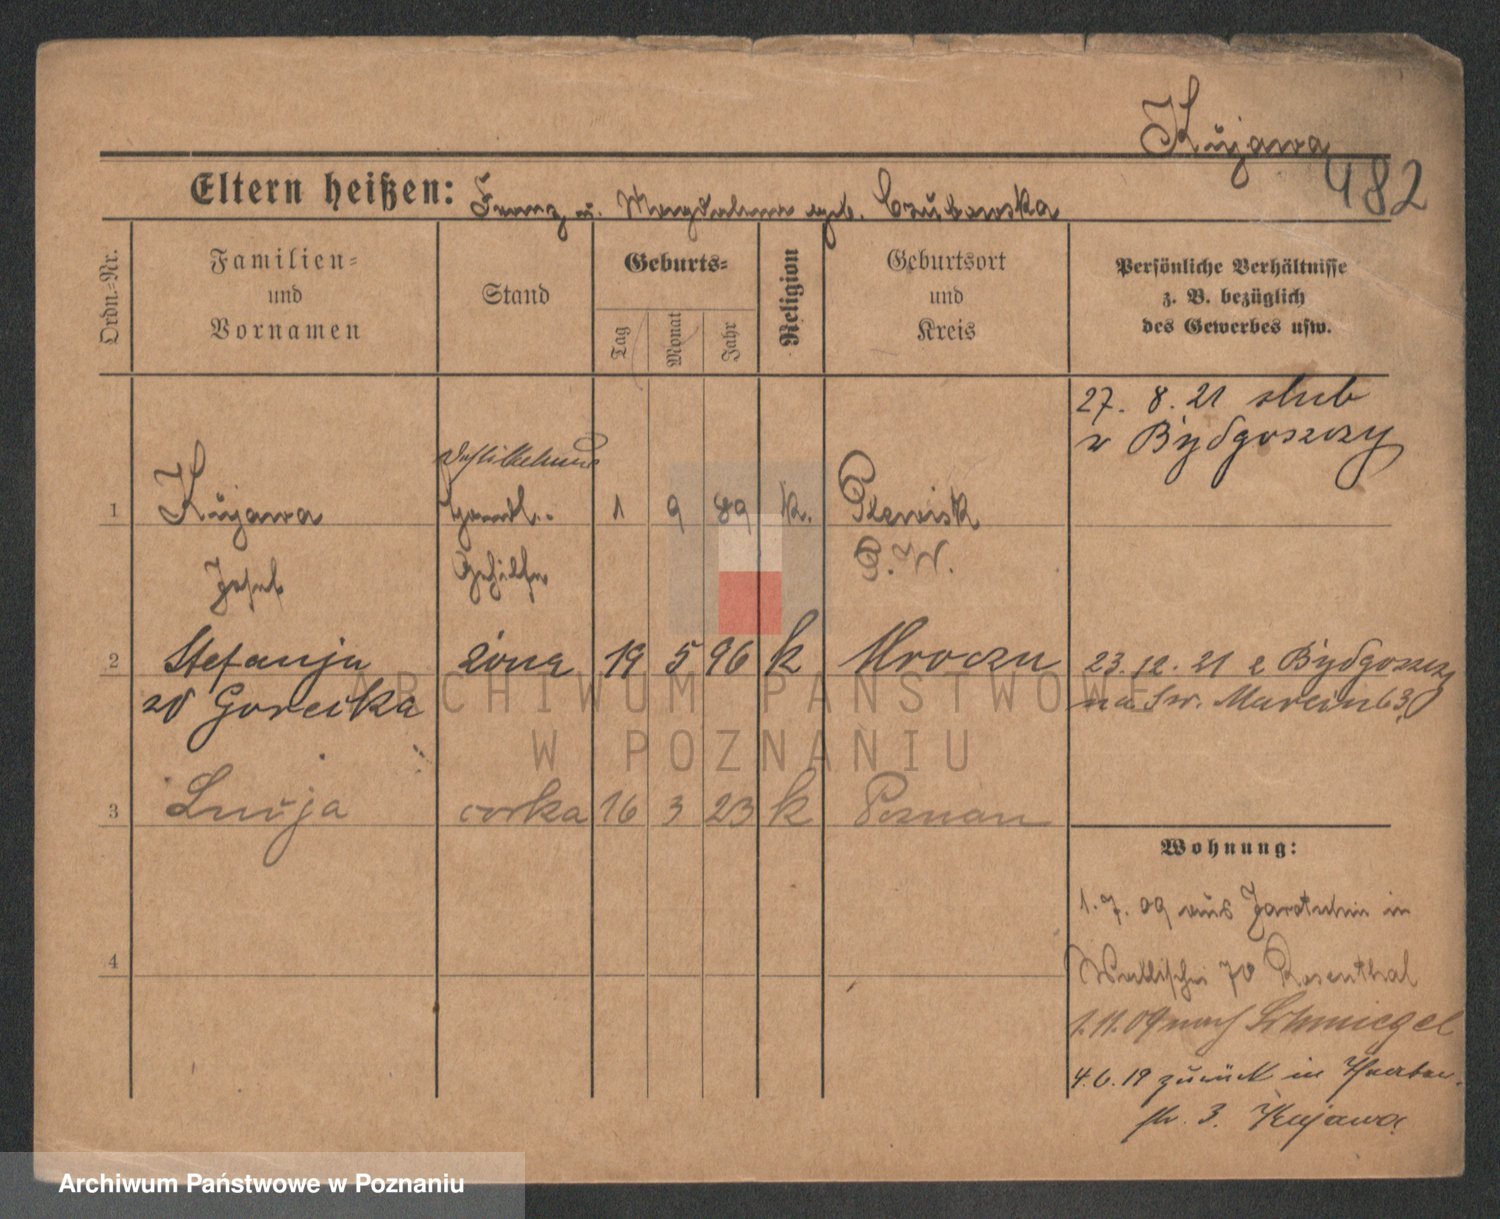 Kujawa
482
Eltern heißen: Franz u. Magdalena geb. Czubawska
Ordn.-Nr.
Familien-
und
Vornamen
Stand
Geburts-
Tag
Monat
Jahr
Religion
Geburtsort
und
Kreis
Persönliche Verhältnisse
z. B. bezüglich
des Gewerbes usw.
27. 8. 21 slub
w Bydgoszczy
1 Kujawa Handl.- 1 9 89 k. Plewisk
Josef Gehilfe P. W.
2 Stefanja żona 19 5 96 k Mroczu 23. 12. 21 z Bydgoszczy
zd Gorecka na Sw. Marcin 63
3 corka 16 3 23 k Poznan
Wohnung:
1. 7. 09 aus Jarotschin in
4 Wallischei 70 Rosenthal
1. 11. 09 nach Schmiegel
4. 6. 19 zurück in
str. 3. Kujawa
ARCHIWUM PAŃSTWOWE
W POZNANIU
Archiwum Państwowe w Poznaniu